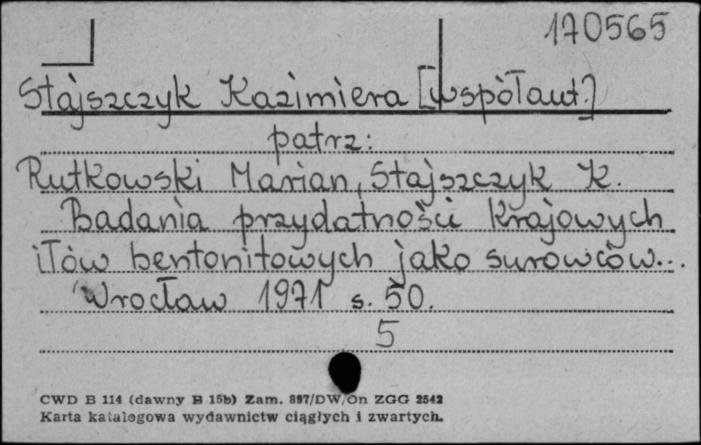 170565
Stajszczyk Kazimiera [współaut.]
patrz:
Rutkowski Marian, Stajszczyk K.
Badania przydatności krajowych
iłów bentonitowych jako surowców...
Wrocław 1971 s. 50.
5
CWD B 114 (dawny B 15b) Zam. 897/DW/On ZGG 2542
Karta katalogowa wydawnictw ciągłych i zwartych.